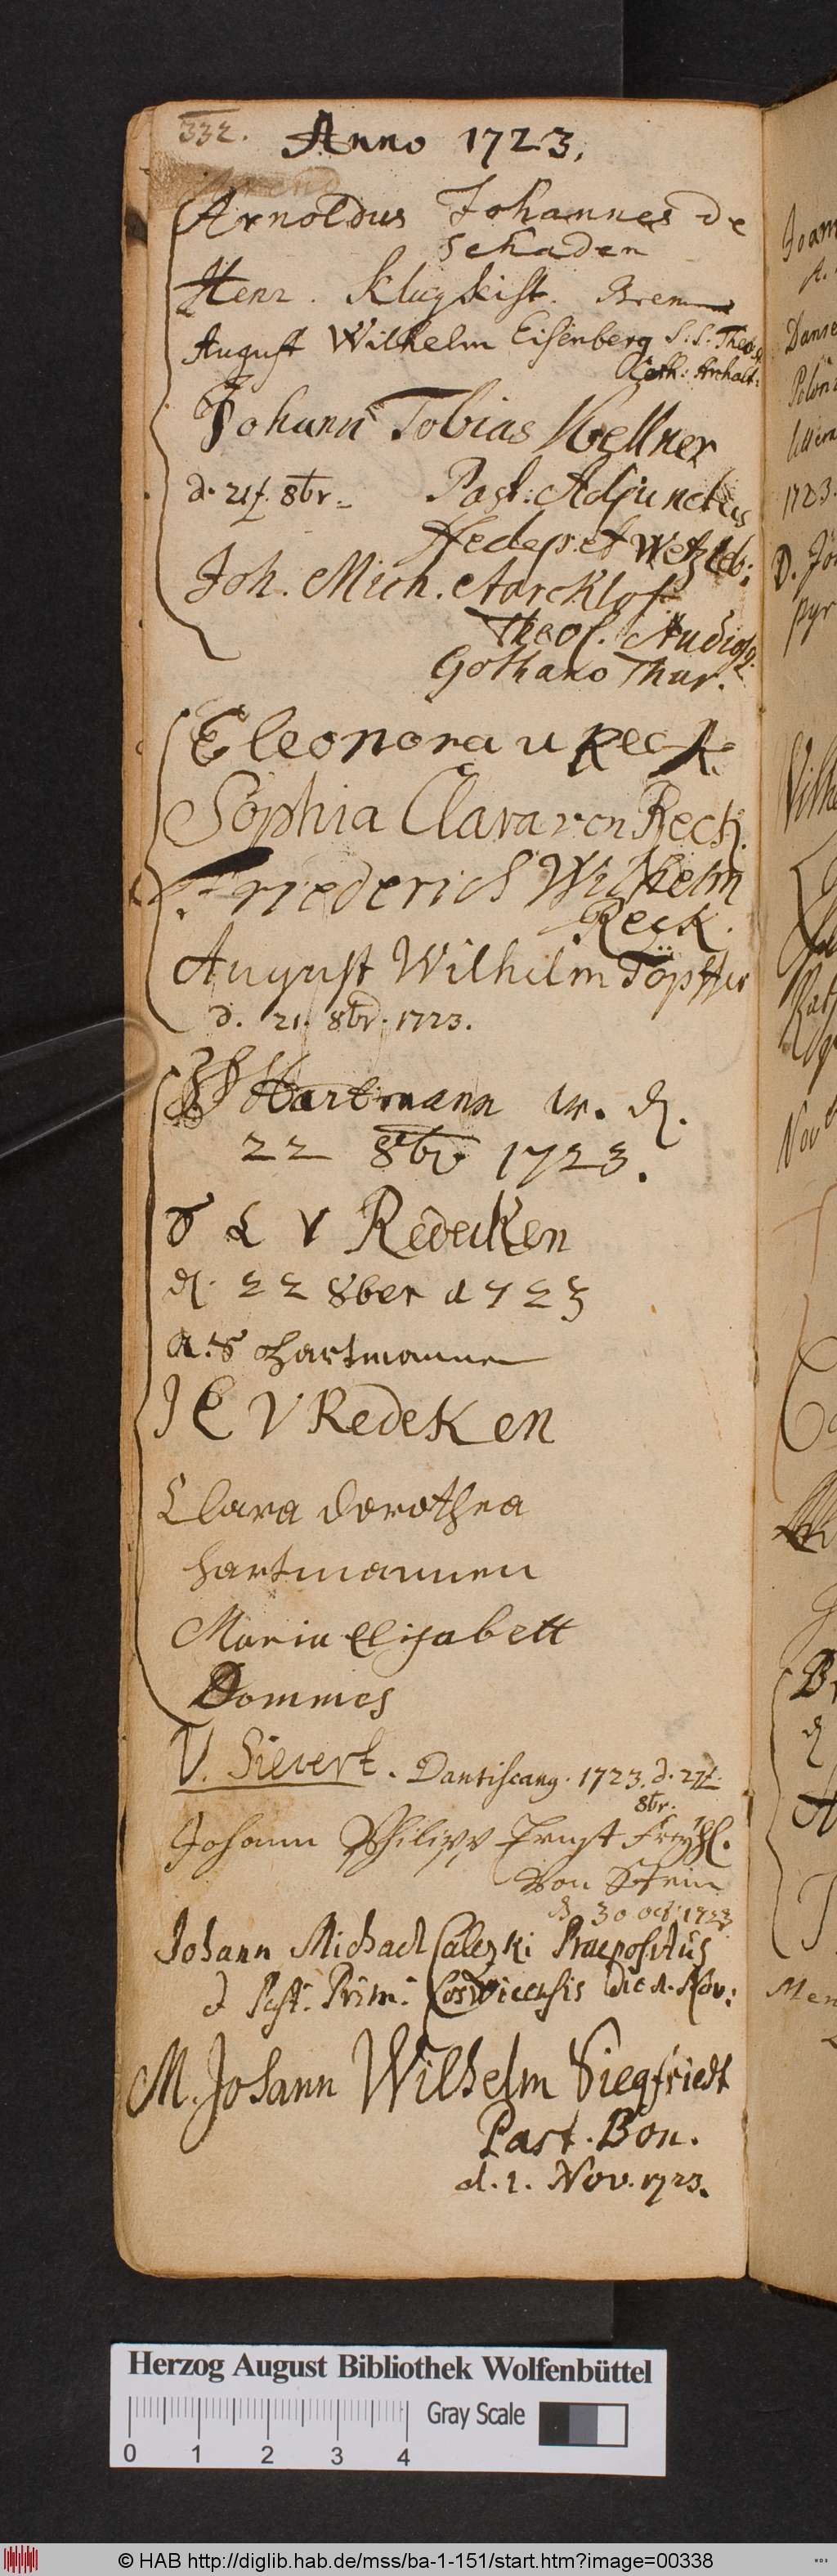 332.
Anno 1723.
Arnoldus Johannes de
Schaden
Henr. Klugkist. Brem
August Wilhelm Eisenberg S. S. Theol.
Coth: Anhalt:
Johann Tobias Kellner
d. 21t. 8br. Past: Adjunctus
Hedep: et Wetzleb:
Joh. Mich.
Theol. Studios9.
Gothano Thur.
Eleonora v Reck
Sophia Clara von Reck.
Friederich Wilhelm
Reck.
August Wilhelm Töpffer
d. 21. 8br. 1723.
Hartmann m. d.
22 8br 1723.
L V Redecken
d. 22 8ber 1723
a. S Hartmannen
J C V Redeken
Clara dorothea
hartmannen
Maria Elisabett
Dommes
V. Sievert. Dantiscang. 1723. d. 27t.
8br.
Johann Philipp Ernst Freyh.
von Stein
d. 30 oct: 1723
Johann Michael Calezki Praepositus
Past. Prim: Coswicensis die 1. Nov:
M. Johann Wilhelm Siegfriedt
Past. Bon.
d. 1. Nov. 1723.
Joan
Danse
Polon
1723.
D. Jo
pyr
Nov
Herzog August Bibliothek Wolfenbüttel
Gray Scale
0 1 2 3 4
© HAB http://diglib.hab.de/mss/ba-1-151/start.htm?image=00338